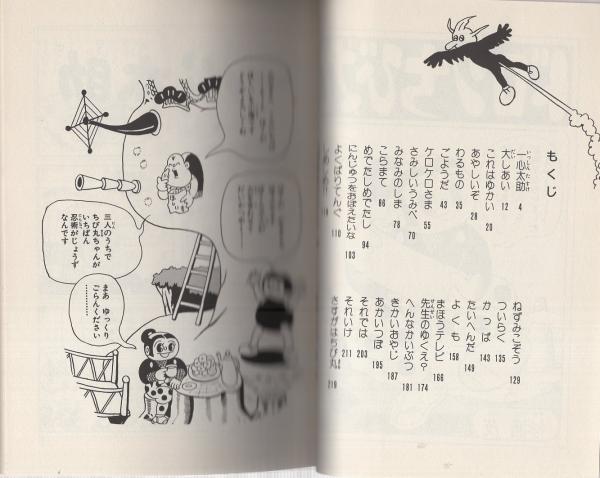 もくじ
一心太助 4
大しあい 12
これはゆかい 20
あやしいぞ 28
わるもの 35
ごようだ 43
ケロケロさま 55
さみしいうみべ 70
みなみのしま 78
こらまて 86
めでたしめでたし 94
にんじゅつをおぼえたいな 103
よくばりてんぐ 110
ねずみこぞう 129
ついらく 135
かっぱ 143
たいへんだ 149
よくも 158
まほうテレビ 166
先生のゆくえ? 174
へんなかいぶつ 181
きかいおやじ 187
あかいつぼ 195
それでは 203
それいけ 211
さすがはちび丸 219
三人のうちで
ちび丸ちゃんが
いちばん
忍術がじょうず
なんです
まあ ゆっくり
ごらんください
…………